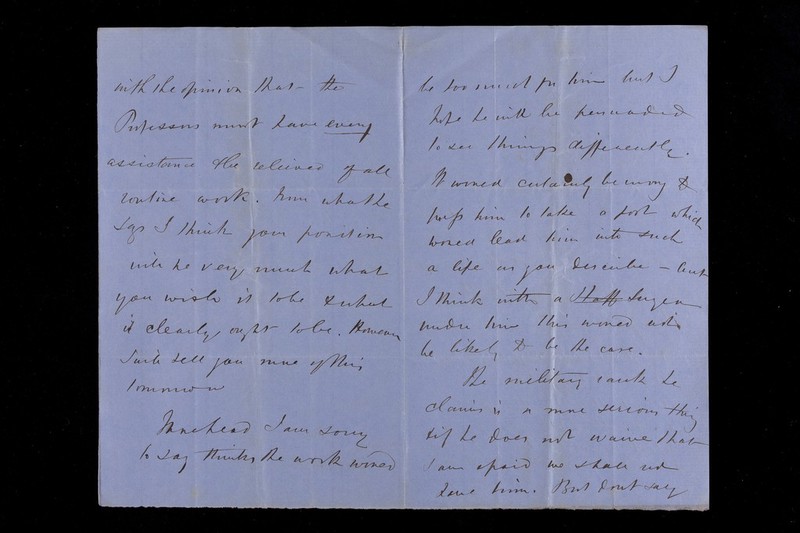 with the opinion that the
Professors must have every
assistance & be relieved of all
routine work. From what he
says I think your position
will be very much what
you wish it to be & what
it clearly ought to be. However
I will tell you more of this
tomorrow
I am sorry
to say thinks the work would
be too much for him but I
hope he will be persuaded
to see things differently.
It would certainly be wrong to
press him to take a post which
would lead him into such
a life as you describe – but
I think with a Staff Surgeon
under him this would not
be likely to be the case.
The military rank he
claims is a more serious thing
& if he does not waive that
I am afraid we shall not
have him. But don't say